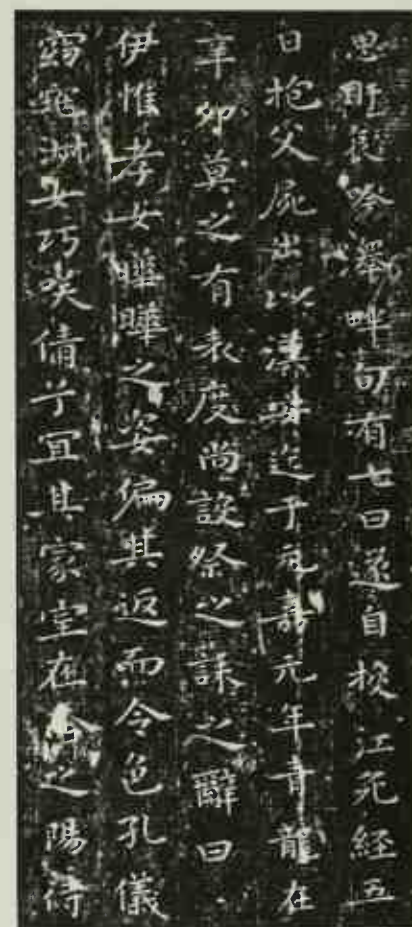 思盱號吟澤畔旬有七日遂自投江死經五
日抱父屍出以漢安迄于元嘉元年青龍在
辛卯莫之有表度尚設祭之誄之辭曰
伊惟孝女曄曄之姿偏其返而令色孔儀
窈窕淑女巧笑倩兮宜其家室在洽之陽待